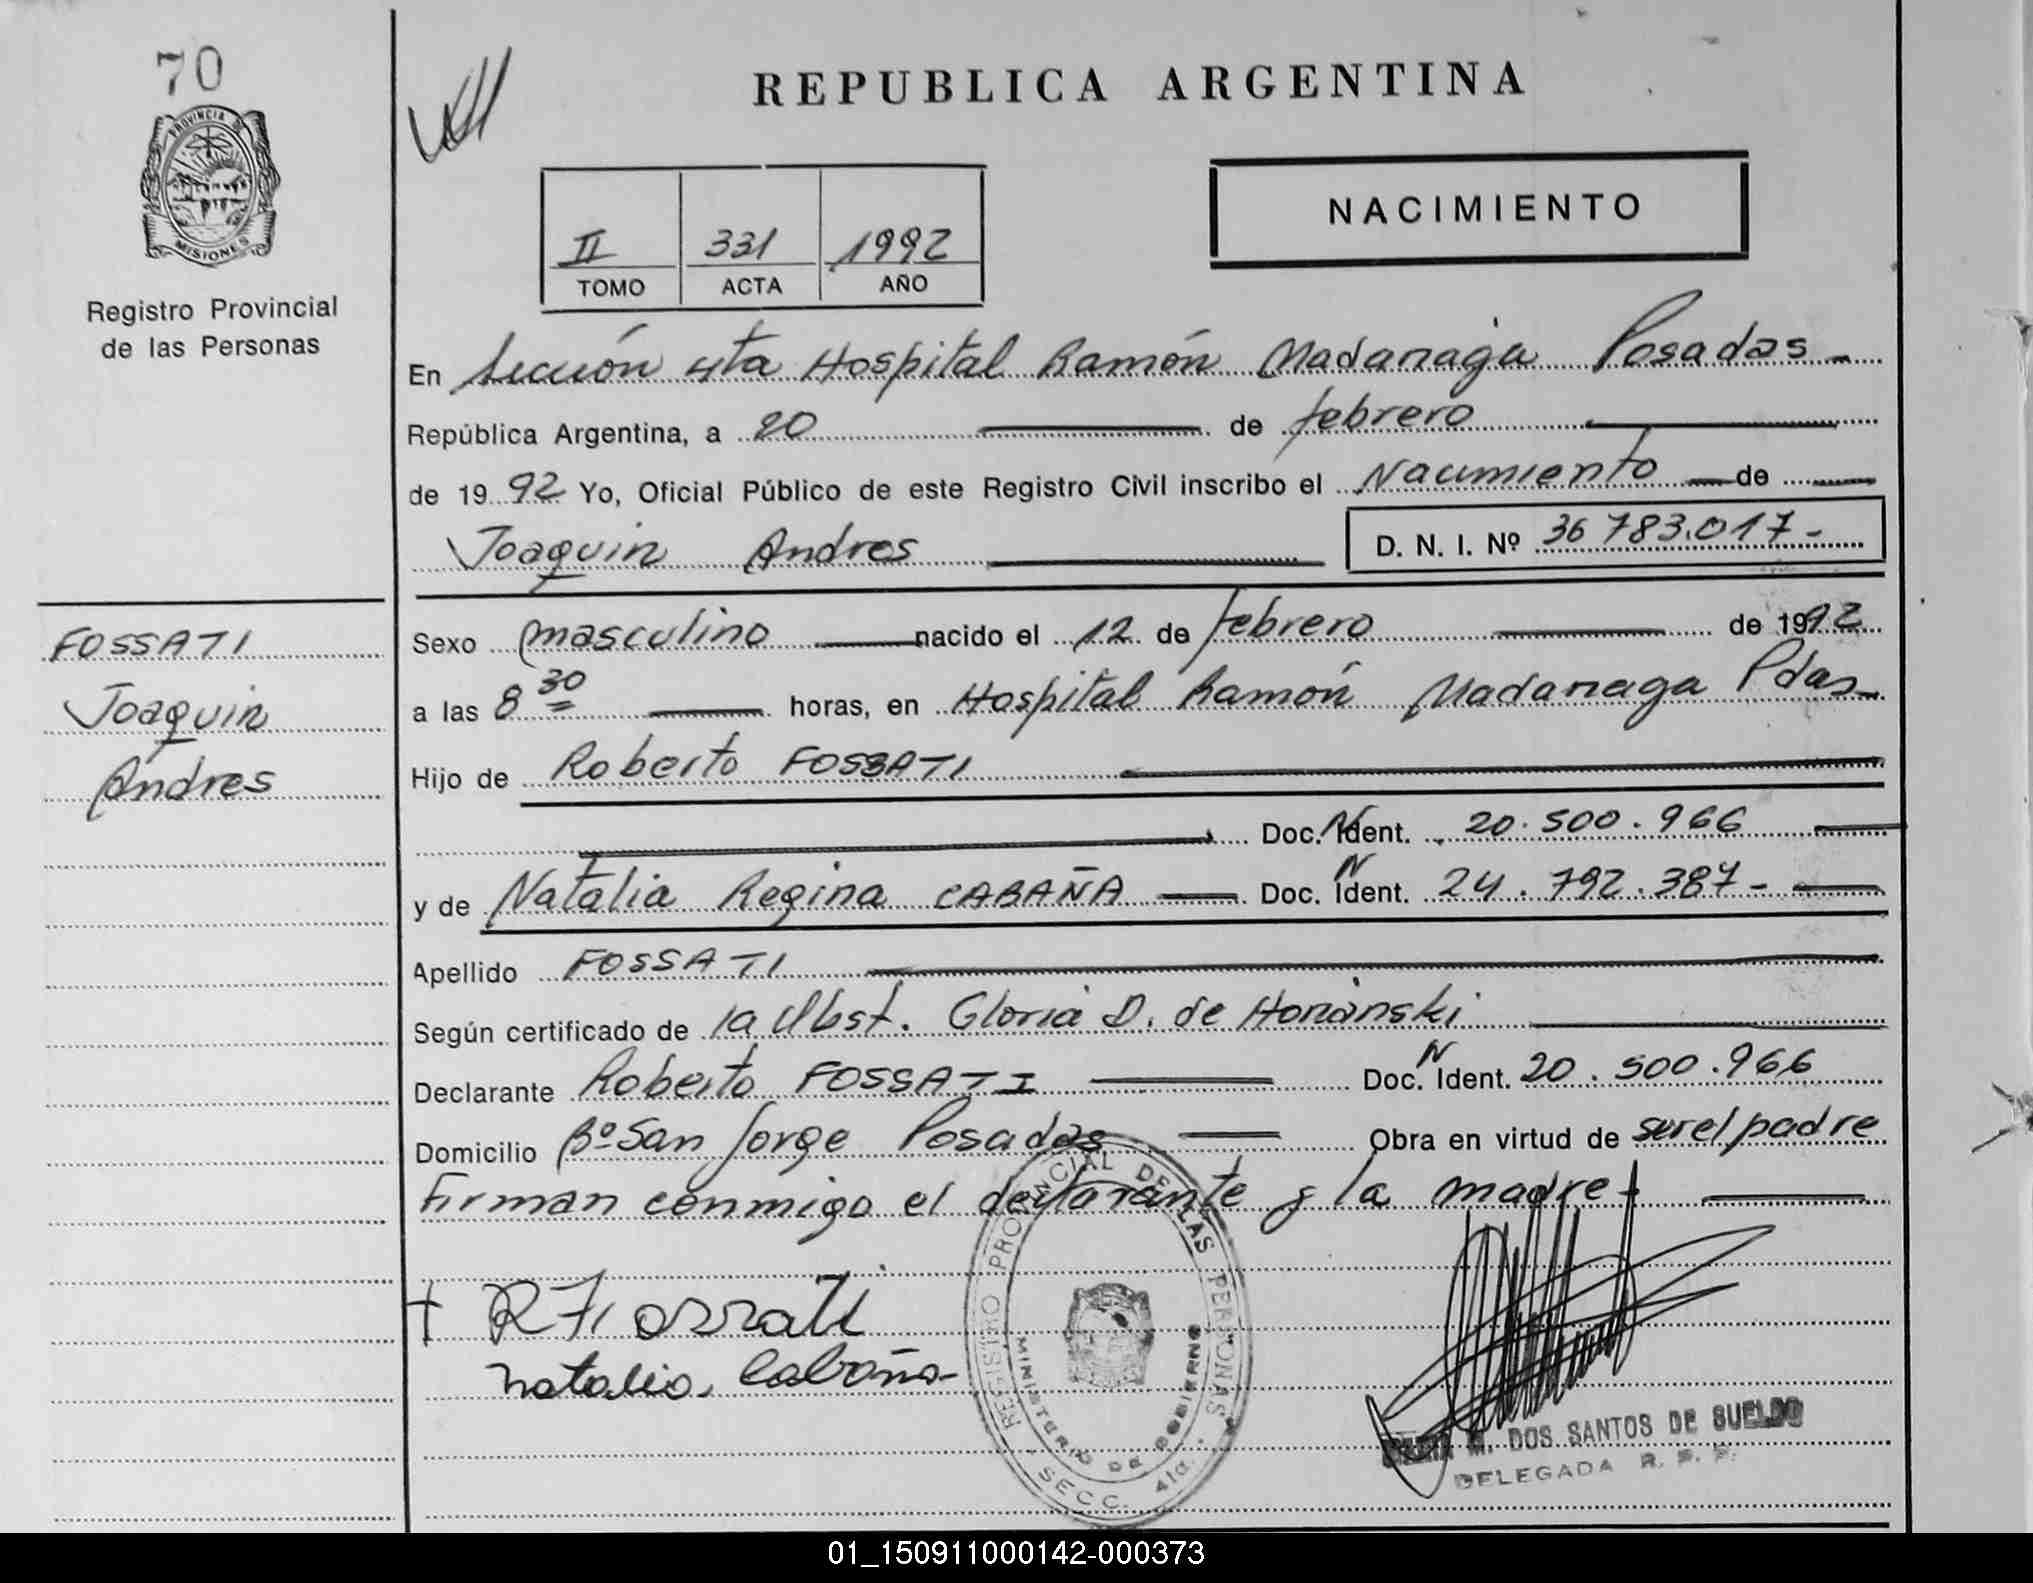 70
PROVINCIA DE
MISIONES
Registro Provincial
de las Personas
REPUBLICA ARGENTINA
NACIMIENTO
II 331 1992
TOMO ACTA AÑO
En Sección 4ta Hospital Ramón Madariaga Posadas
República Argentina, a 20 de febrero
de 1992 Yo, Oficial Público de este Registro Civil inscribo el Nacimiento de
Joaquin Andres D. N. I. Nº 36 783.017-
FOSSATI
Joaquin
Andres
Sexo masculino nacido el 12 de febrero de 1992
a las 8 30 horas, en Hospital Ramón Madariaga Pdas
Hijo de Roberto FOSSATI
Doc. N Ident. 20.500.966
y de Natalia Regina CABAÑA Doc. N Ident. 24.792.387-
Apellido FOSSATI
Según certificado de la Obst. Gloria D. de
Declarante Roberto FOSSATI Doc. N Ident. 20.500.966
Domicilio Bº San Jorge Posadas Obra en virtud de ser el padre
Firman conmigo el declarante y la madre-
R Fossati
Natalia Cabaña
REGISTRO PROVINCIAL DE LAS PERSONAS
MINISTERIO DE GOBIERNO
SECC. 4ta.
M. DOS SANTOS DE SUELDO
DELEGADA R. P. P.
01_150911000142-000373